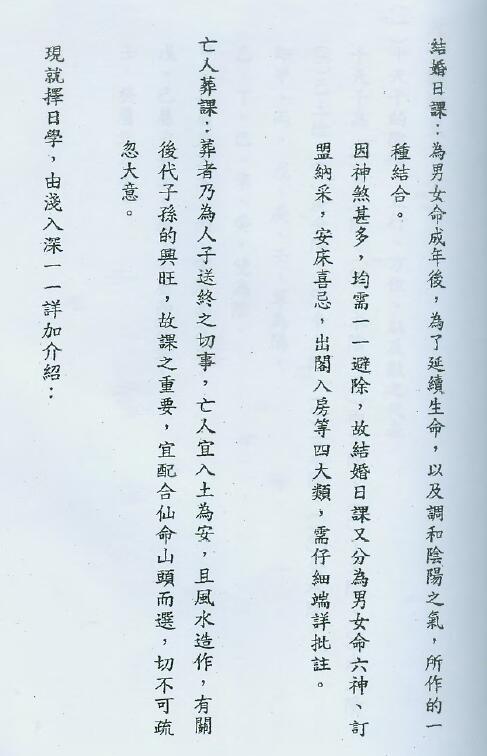 結婚日課：為男女命成年後，為了延續生命，以及調和陰陽之氣，所作的一
種結合。
因神煞甚多，均需一一避除，故結婚日課又分為男女命六神、訂
盟納采，安床喜忌，出閣入房等四大類，需仔細端詳批註。
亡人葬課：葬者乃為人子送終之切事，亡人宜入土為安，且風水造作，有關
後代子孫的興旺，故課之重要，宜配合仙命山頭而選，切不可疏
忽大意。
現就擇日學，由淺入深一一詳加介紹：